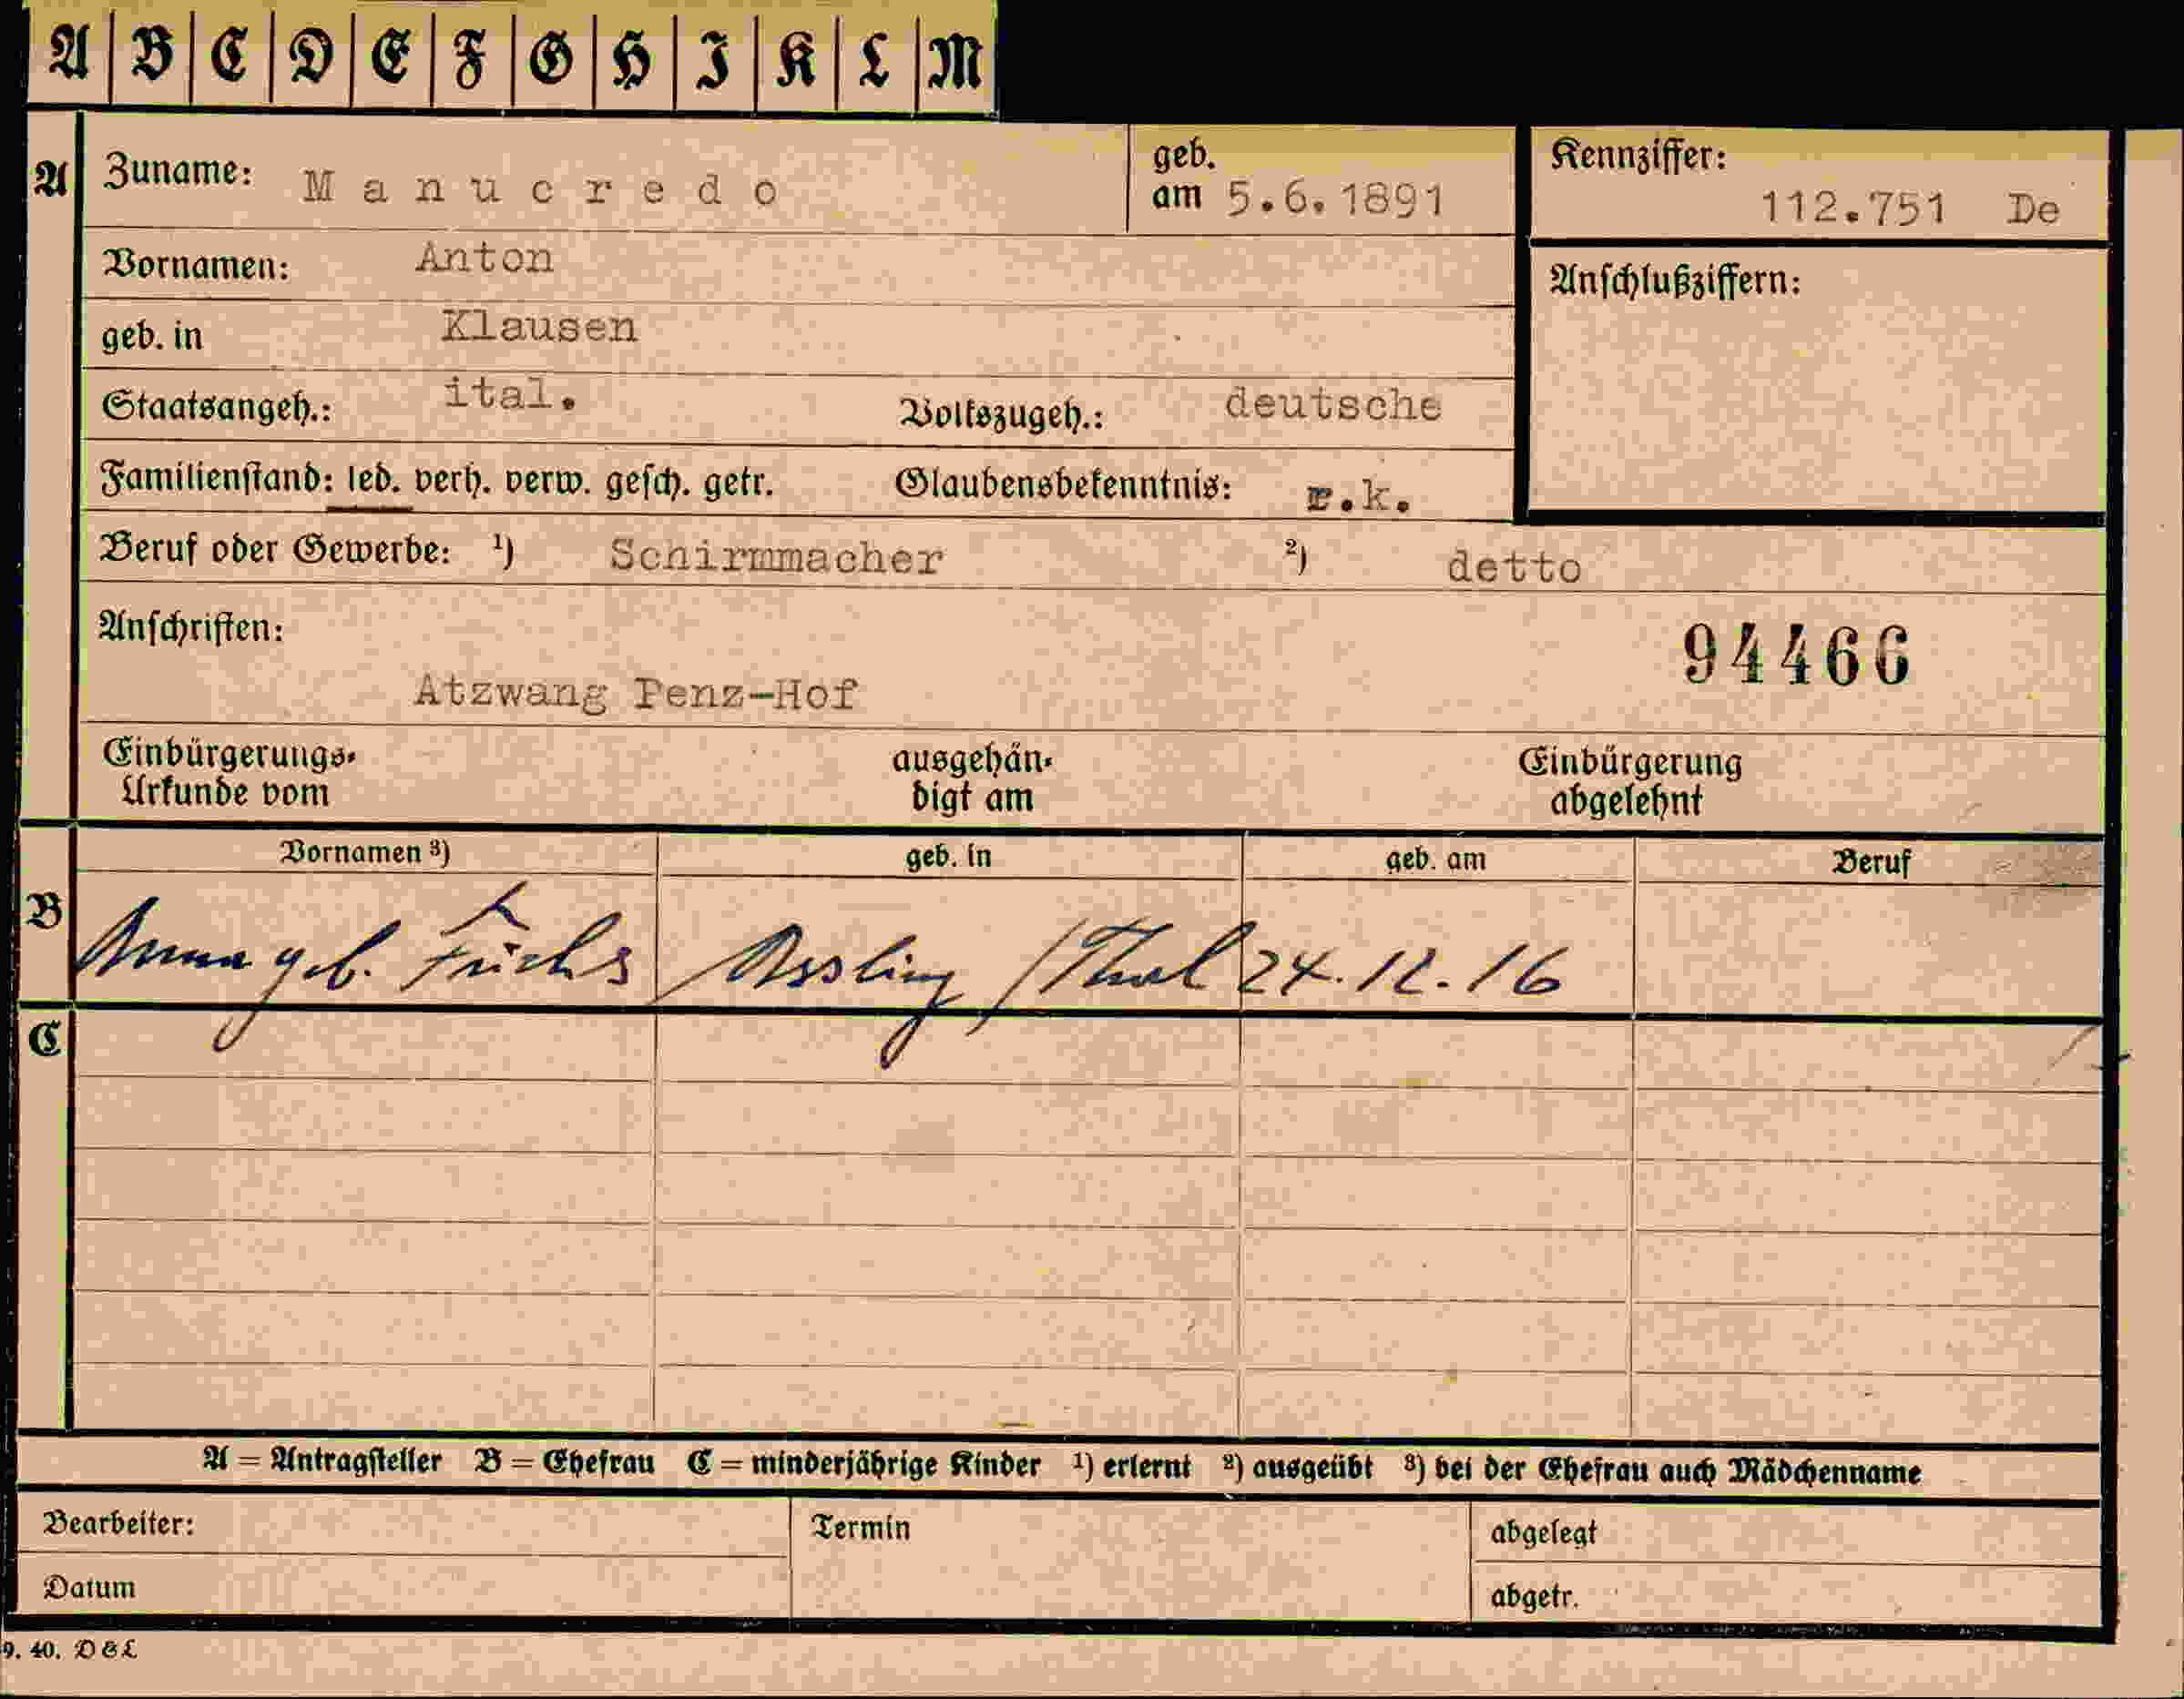 A B C D E F G H I K L M
A Zuname: Manucredo geb. am 5.6.1891 Kennziffer: 112.751 De
Vornamen: Anton Anschlußziffern:
geb. in Klausen
Staatsangeh.: ital. Volkszugeh.: deutsche
Familienstand: led. verh. verw. gesch. getr. Glaubensbekenntnis: r.k.
Beruf oder Gewerbe: ¹) Schirmmacher ²) detto
Anschriften: 94466
Atzwang Penz-Hof
Einbürgerungs- ausgehän- Einbürgerung
Urkunde vom digt am abgelehnt
Vornamen ³) geb. in geb. am Beruf
B Anna geb. Fuchs Assling /Thal 24.12.16
C
A = Antragsteller B = Ehefrau C = minderjährige Kinder ¹) erlernt ²) ausgeübt ³) bei der Ehefrau auch Mädchenname
Bearbeiter: Termin abgelegt
Datum abgetr.
9. 40. D&L